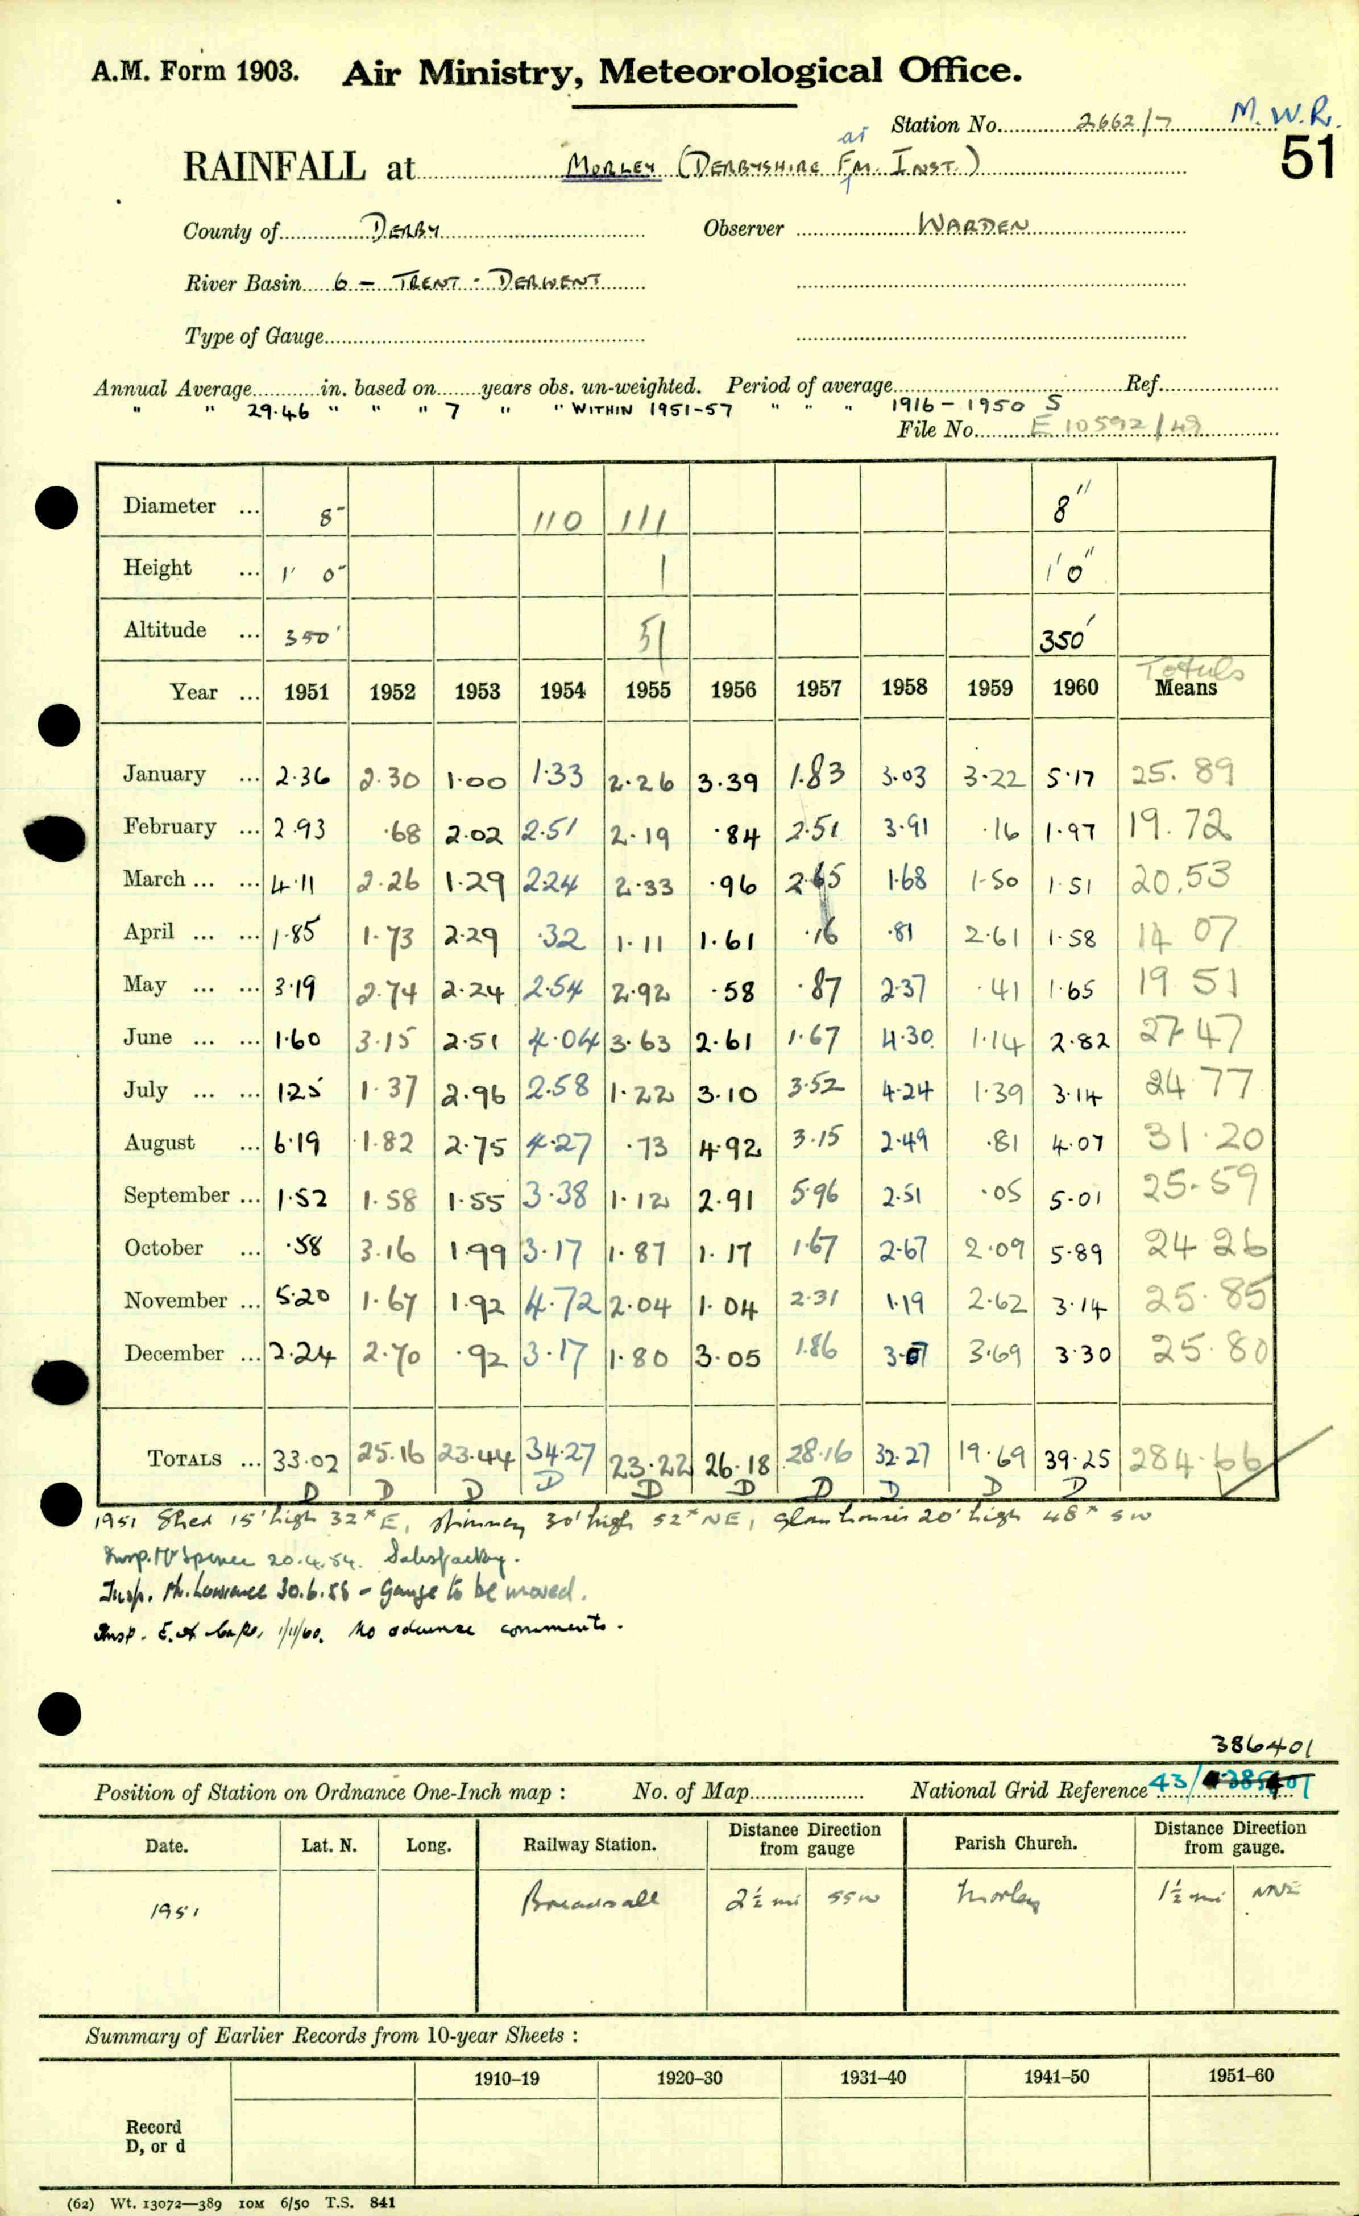 A.M. Form 1903. Air Ministry, Meteorological Office.
Station No. 2662/7 M.W.R.
51
RAINFALL at MORLEY (DERBYSHIRE FM. INST.)
County of DERBY Observer WARDEN
River Basin 6 – TRENT - DERWENT
Type of Gauge
Annual Average in. based on years obs. un-weighted. Period of average Ref.
" " 29.46 " " " 7 " " WITHIN 1951-57 " " " 1916-1950 S
File No. E 10592/49
Diameter ... 8" 110 111 8"
Height ... 1' 0" 1 1' 0"
Altitude ... 350' 51 350'
Totals
Year ... 1951 1952 1953 1954 1955 1956 1957 1958 1959 1960 Means
January ... 2.36 2.30 1.00 1.33 2.26 3.39 1.83 3.03 3.22 5.17 25.89
February ... 2.93 .68 2.02 2.51 2.19 .84 2.51 3.91 .16 1.97 19.72
March ... ... 4.11 2.26 1.29 2.24 2.33 .96 2.65 1.68 1.50 1.51 20.53
April ... ... 1.85 1.73 2.29 .32 1.11 1.61 .16 .81 2.61 1.58 14 07
May ... ... 3.19 2.74 2.24 2.54 2.92 .58 .87 2.37 .41 1.65 19 51
June ... ... 1.60 3.15 2.51 4.04 3.63 2.61 1.67 4.30 1.14 2.82 27 47
July ... ... 1.25 1.37 2.96 2.58 1.22 3.10 3.52 4.24 1.39 3.14 24 77
August ... 6.19 1.82 2.75 4.27 .73 4.92 3.15 2.49 .81 4.07 31.20
September ... 1.52 1.58 1.55 3.38 1.12 2.91 5.96 2.51 .05 5.01 25.59
October ... .58 3.16 1.99 3.17 1.87 1.17 1.67 2.67 2.09 5.89 24 26
November ... 5.20 1.67 1.92 4.72 2.04 1.04 2.31 1.19 2.62 3.14 25.85
December ... 2.24 2.70 .92 3.17 1.80 3.05 1.86 3.07 3.69 3.30 25.80
TOTALS ... 33.02 25.16 23.44 34.27 23.22 26.18 28.16 32.27 19.69 39.25 284.66
D D D D D D D D D D
1951 Shed 15' high 32" E, chimney 30' high 52" NE, glasshouses 20' high 48" SW
Insp. Mr Spence 20.4.54. Satisfactory.
Insp. Mr. Lowrance 30.6.58 - Gauge to be moved.
Insp. E. 1/11/60. No adverse comments.
386401
Position of Station on Ordnance One-Inch map : No. of Map National Grid Reference 43/
Date. Lat. N. Long. Railway Station. Distance Direction from gauge Parish Church. Distance Direction from gauge.
1951 Breadsall 2½ mi SSW Morley 1½ mi NNE
Summary of Earlier Records from 10-year Sheets :
1910–19 1920–30 1931–40 1941–50 1951–60
Record
D, or d
(62) Wt. 13072—389 10M 6/50 T.S. 841